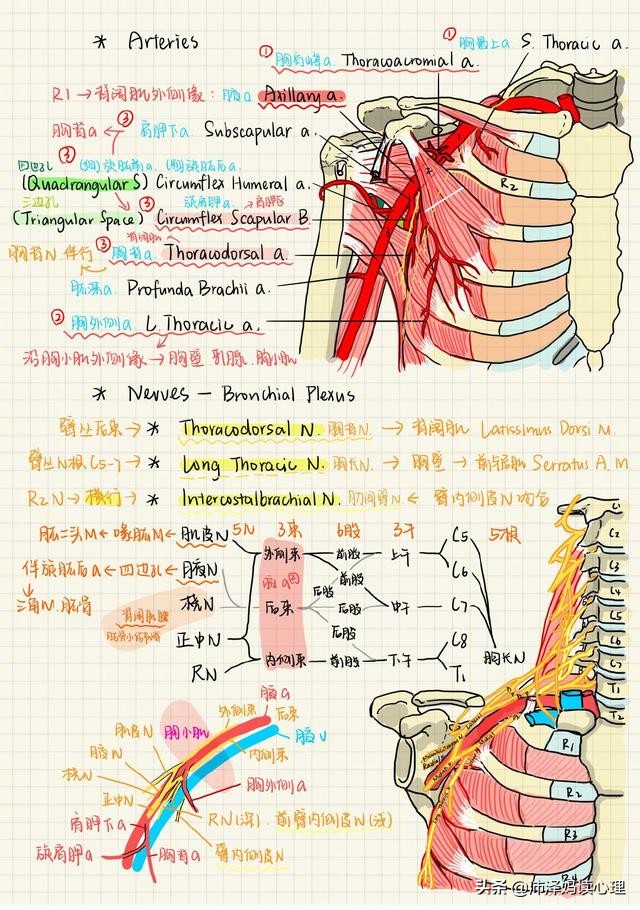 * Arteries
① 胸肩峰a. Thoracoacromial a.
① 胸最上a. S. Thoracic a.
R1 → 背阔肌外侧缘: 腋a Axillary a.
胸背a ← ③ 肩胛下a. Subscapular a.
四边孔 ③ (旋肱前a. 旋肱后a.
(Quadrangular S) Circumflex Humeral a.
三边孔 旋肩胛a. →肩胛区
(Triangular Space) ③ Circumflex Scapular B
背阔肌
胸背N 伴行 ③ 胸背a. Thoracodorsal a.
肱深a. Profunda Brachii a.
② 胸外侧a L. Thoracic a.
沿胸小肌外侧缘 → 胸壁 乳腺 胸小肌
R2
* Nerves — Bronchial Plexus
臂丛后束 → * Thoracodorsal N. 胸背N. → 背阔肌 Latissimus Dorsi M.
臂丛N根 C5-7 → * Long Thoracic N. 胸长N. → 胸壁 → 前锯肌 Serratus A. M.
R2 N → 横行 → * Intercostalbrachial N. 肋间臂N ← 臂内侧皮N吻合
5N 3束 6股 3干 5根
肱二头M ← 喙肱M ← 肌皮N 外侧束 前股 上干 C5
C6
伴旋肱后a ← 四边孔 ← 腋N 腋a周 后股 前股
三角M. 肱骨 桡N 后束 后股 中干 C7
正中N 后股 C8
RN 内侧束 前股 下干 T1
胸长N
C1
C2
C3
C4
C5
C6
C7
T1
T2
腋a
外侧束 后束
肌皮N 胸小肌 腋V
腋N 内侧束
桡N 胸外侧a
正中N
肩胛下a RN(深). 前臂内侧皮N(浅)
旋肩胛a 胸背a 臂内侧皮N
R1
R2
R3
R4
头条@沛泽妈读心理